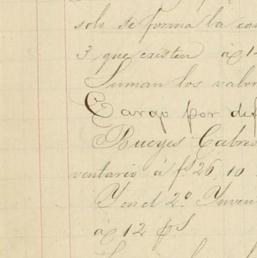 sols se forma la
3 que existen á
Suman los valor
Cargo por def
Bueyes Cabres
ventario á fs 26, 10
Y en el 2º Inven
á 12 ps